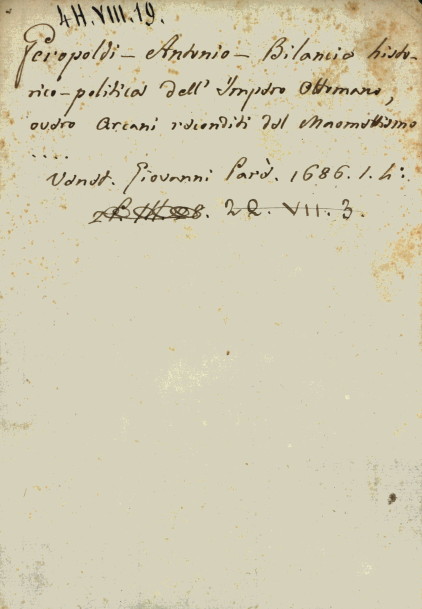 4H.VIII.19.
Geropoldi - Antonio - Bilancia histo-
rico-politica dell' Impero Ottomano,
overo Arcani reconditi del Maomettismo
....
Venet. Giovanni Parè. 1686. 1. 4:
22. VII. 3.